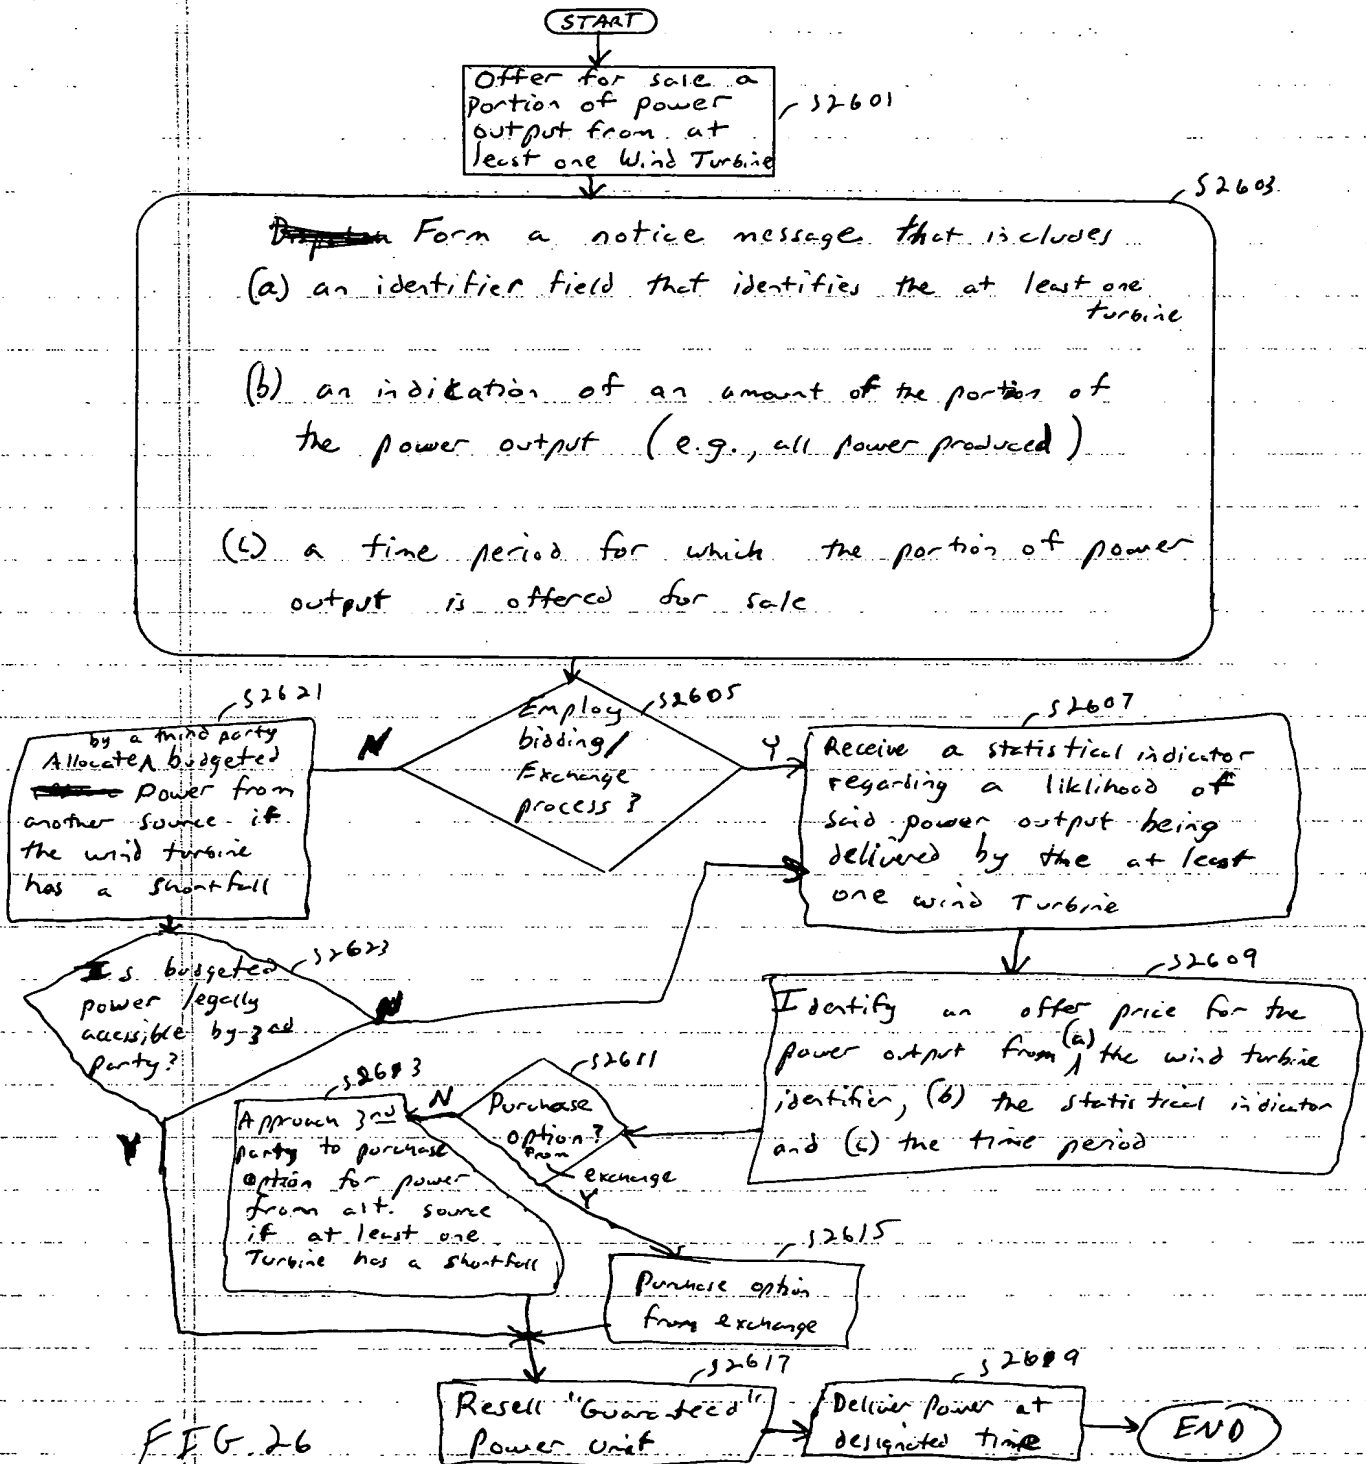 START
Offer for sale a
portion of power
output from at
least one Wind Turbine
S2601
S2603
Form a notice message that includes
(a) an identifier field that identifies the at least one
turbine
(b) an indication of an amount of the portion of
the power output (e.g., all power produced)
(c) a time period for which the portion of power
output is offered for sale
S2605
Employ
bidding/
Exchange
process?
N
Y
S2621
by a third party
Allocate budgeted
Power from
another source if
the wind turbine
has a shortfall
S2607
Receive a statistical indicator
regarding a liklihood of
said power output being
delivered by the at least
one wind Turbine
S2623
Is budgeted
power legally
accessible by 3rd
party?
N
Y
S2609
Identify an offer price for the
power output from (a) the wind turbine
identifier, (b) the statistical indicator
and (c) the time period
S2611
Purchase
option?
from
exchange
N
Y
S2613
Approach 3rd
party to purchase
option for power
from alt. source
if at least one
Turbine has a shortfall
S2615
Purchase option
from exchange
S2617
Resell "Guaranteed"
Power Unit
S2619
Deliver Power at
designated time
END
FIG. 26